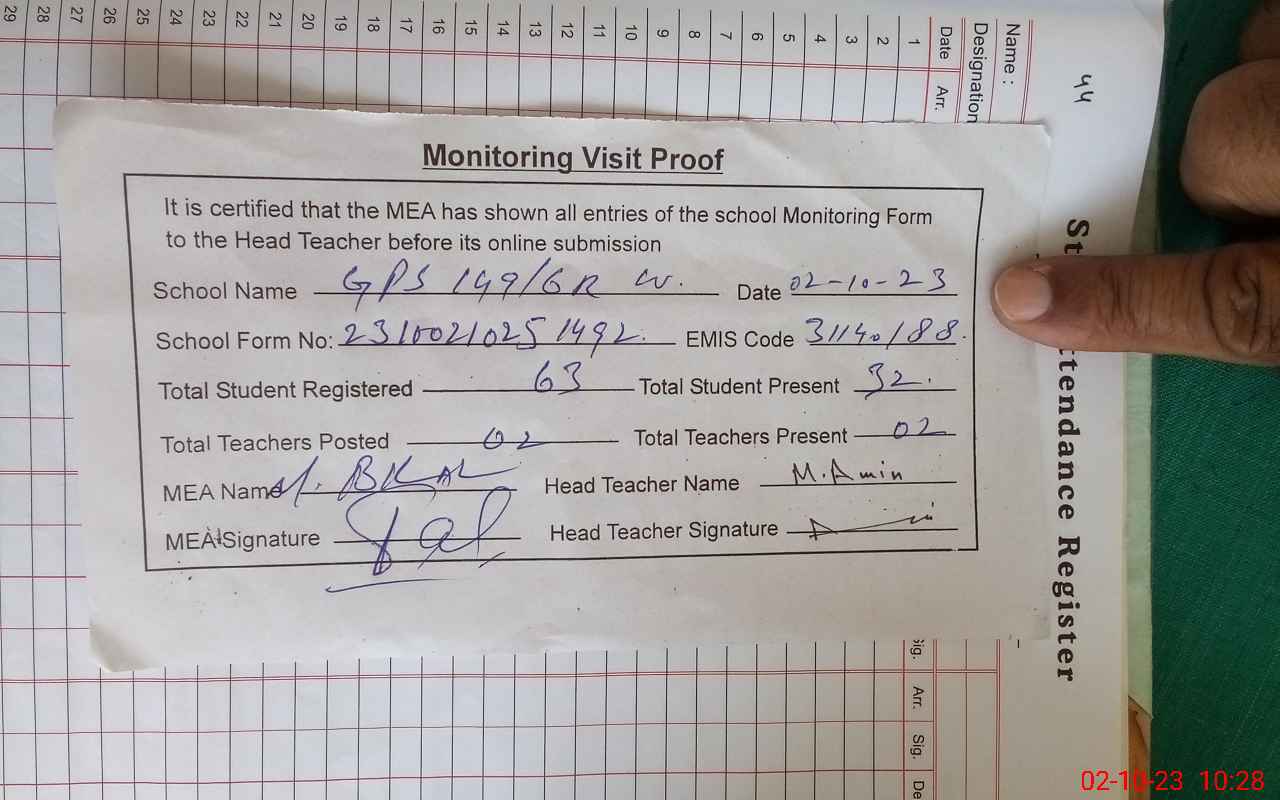 Monitoring Visit Proof
It is certified that the MEA has shown all entries of the school Monitoring Form
to the Head Teacher before its online submission
School Name GPS 149/6R W. Date 02-10-23
School Form No: 2310021025 1492. EMIS Code 31140188.
Total Student Registered 63 Total Student Present 32.
Total Teachers Posted 02 Total Teachers Present 02
MEA Name M. Head Teacher Name M.Amin
MEA Signature Head Teacher Signature
Name :
Designation
Date 1 2 3 4 5 6 7 8 9 10 11 12 13 14 15 16 17 18 19 20 21 22 23 24 25 26 27 28 29
Arr.
44
Attendance Register
Sig.
Arr.
Sig.
De
02-10-23 10:28